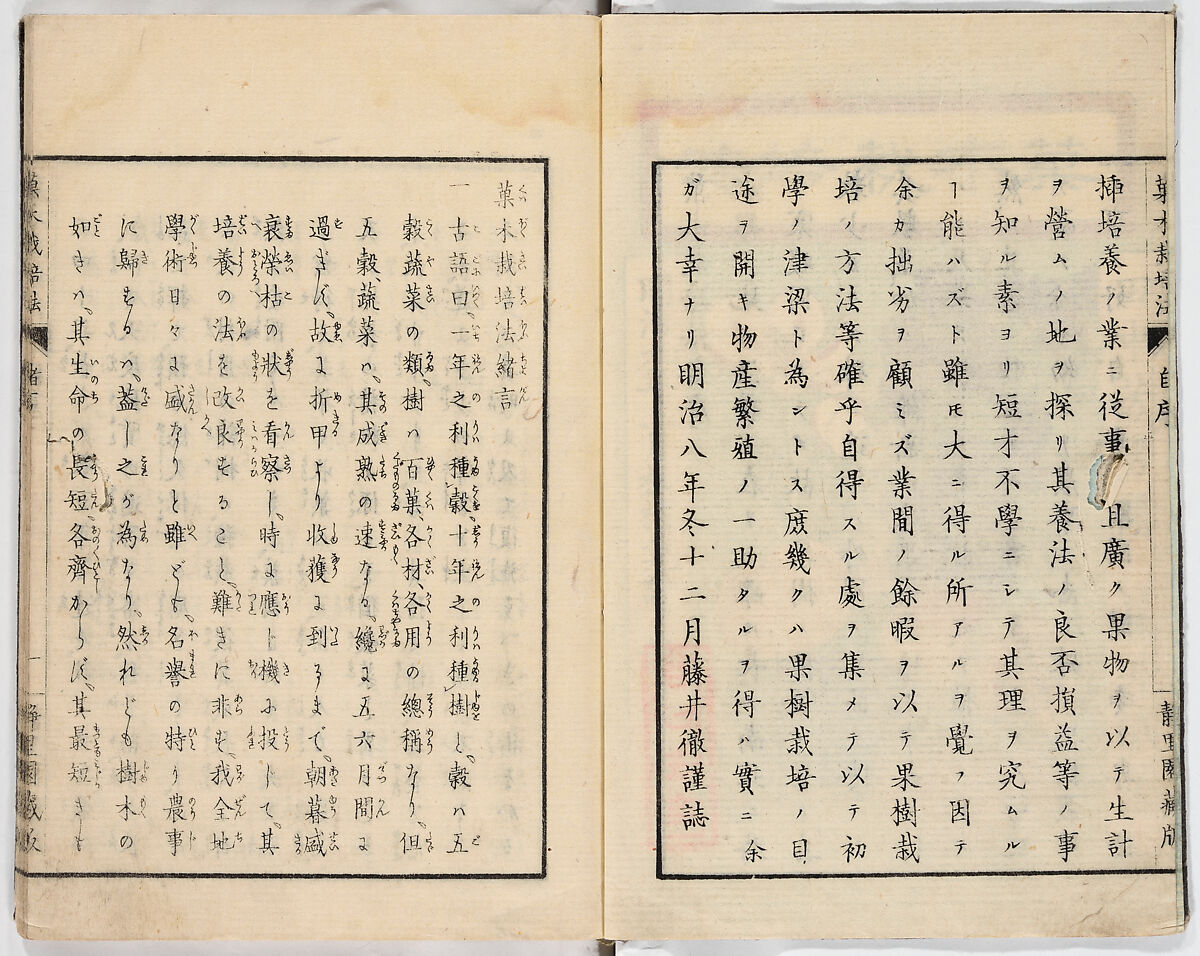 菓木栽培法
自序
靜里園藏版
揷培養ノ業ニ從事シ且廣ク果物ヲ以テ生計
ヲ營ムノ地ヲ探リ其養法ノ良否損益等ノ事
ヲ知ル素ヨリ短才不學ニシテ其理ヲ究ムル
ヿ能ハズト雖モ大ニ得ル所アルヲ覺フ因テ
余カ拙劣ヲ顧ミズ業間ノ餘暇ヲ以テ果樹栽
培ノ方法等確乎自得スル處ヲ集メテ以テ初
學ノ津梁ト為シトス庶幾クハ果樹栽培ノ目
途ヲ開キ物産繁殖ノ一助タルヲ得ハ實ニ余
ガ大幸ナリ明治八年冬十二月藤井徹謹誌
菓木栽培法緒言
一古語曰、一年之利種穀、十年之利種樹と、穀ハ五
穀蔬菜の類、樹ハ百菓、各材各用の總稱なり、但
五穀、蔬菜ハ、其成熟の速なる、纔に五六月間に
過ぎず、故に折甲より收獲に到るまで、朝暮盛
衰榮枯の狀を看察し、時に應じ機に投して、其
培養の法を改良することし難きに非ず、我全地
學術日々に盛なりと雖ども、名譽の特り農事
に歸するハ、蓋し之が為なり、然れども樹木の
如きハ、其生命の長短、各齊からず、其最短きも
菓木栽培法
緒言
一
靜里園藏版